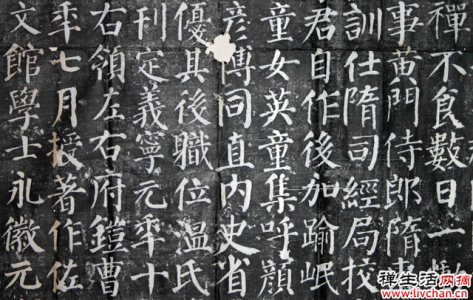 禪不食數日一
事黃門侍郎隋
訓仕隋司經局校
君自作後加踰岷
童女英童集呼顏
彥博同直內史省
優其後職位溫氏
刊定義寧元年十
右領左右府鎧曹
年七月授著作佐
文館學士永徽元
禅生活网摘
www.livchan.cn